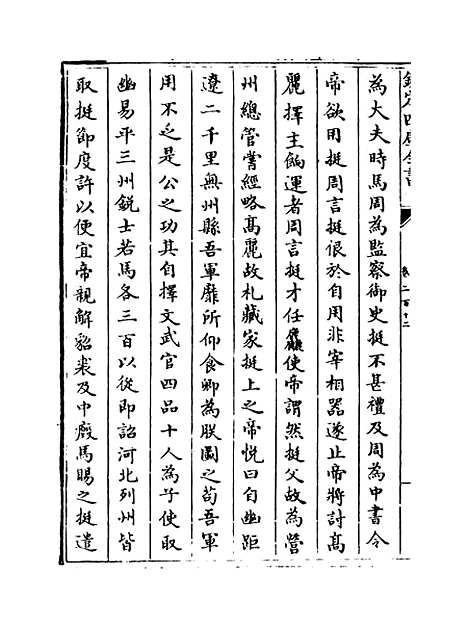 欽定四庫全書
卷二百十二
為大夫時馬周為監察御史挺不甚禮及周為中書令
帝欲用挺周言挺佷於自用非宰相器遂止帝將討髙
麗擇主餉運者周言挺才任麤使帝謂然挺父故為營
州總管嘗經略髙麗故札藏家挺上之帝悦曰自幽距
遼二千里無州縣吾軍靡所仰食卿為朕圖之茍吾軍
用不乏是公之功其自擇文武官四品十人為子使取
幽易平三州銳士若馬各三百以從即詔河北列州皆
取挺節度許以便宜帝親解貂裘及中廏馬賜之挺遣